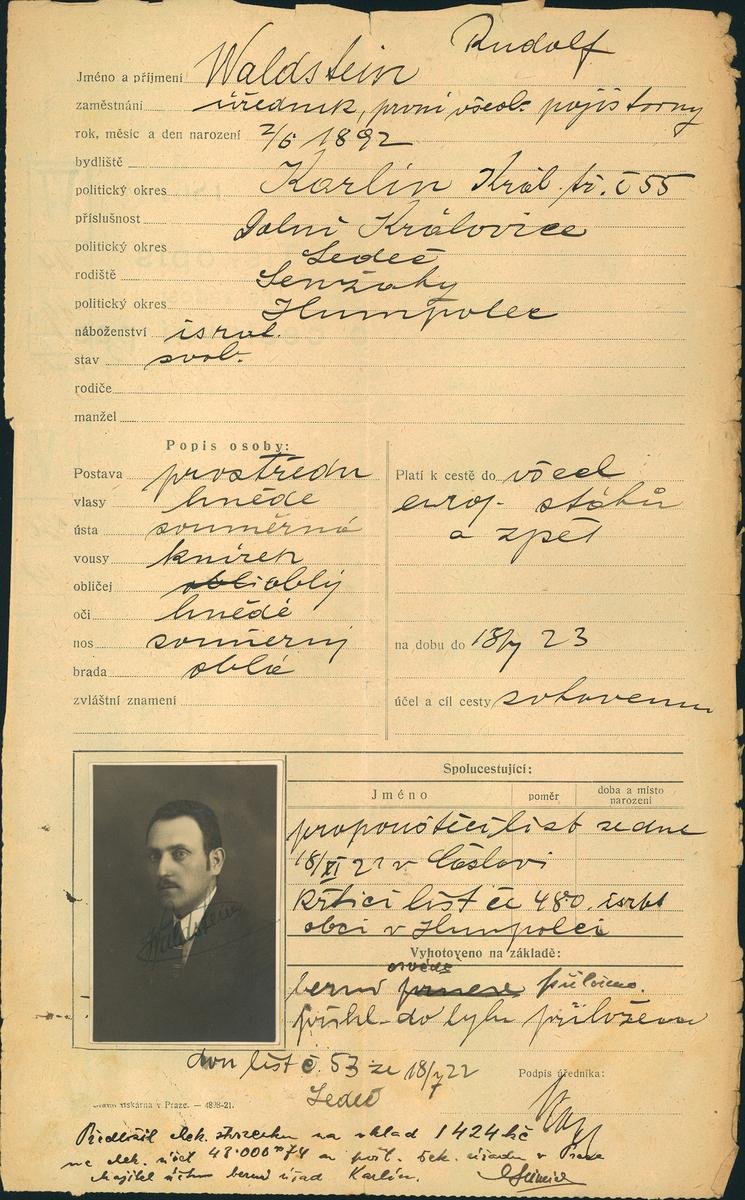 Jméno a příjmení Waldstein Rudolf
zaměstnání úředník, první všeob. pojišťovny
rok, měsíc a den narození 2/6 1892
bydliště
politický okres Karlín Král. tř. č 55
příslušnost Dolní Královice
politický okres Ledeč
rodiště Senžaky
politický okres Humpolec
náboženství israel.
stav svob.
rodiče
manžel
Popis osoby:
Postava prostřední
vlasy hnědé
ústa souměrná
vousy knírek
obličej oblý
oči hnědé
nos souměrný
brada oblá
zvláštní znamení
Platí k cestě do všech
evrop. států
a zpět
na dobu do 23
účel a cíl cesty
Spolucestující:
Jméno poměr doba a místo narození
propouštěcí list ze dne
18/XI 21 v Čáslavi
Křticí list čís 480. israt
obci v Humpolci
Vyhotoveno na základě:
osvědč
berní přiloženo.
přihl. do bytu přiložena
Dom list č. 53 ze 18/7 22
Ledeč
Podpis úředníka:
tiskárna v Praze. — 4898-21.
Waldstein
Předložil šek. stvrzenku na vklad 1424 Kč
na šek. účet u pošt. šek. úřadu v Praze
Majitel účtu berní úřad Karlín.